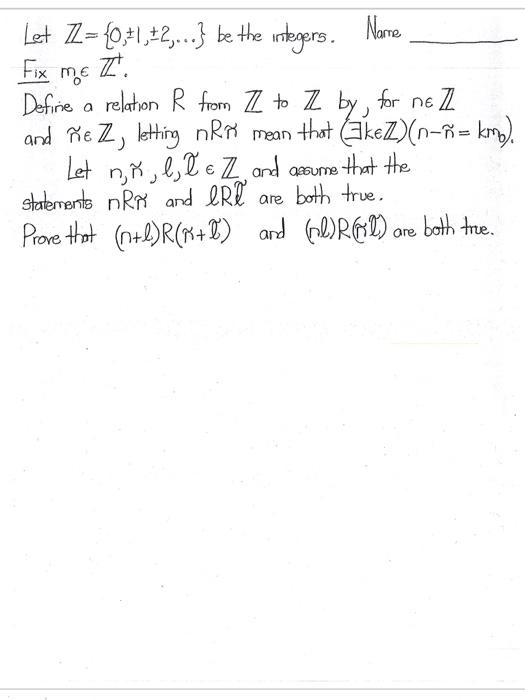 Let ℤ={0,±1,±2,...} be the integers. Name
Fix m₀∈ ℤ⁺.
Define a relation R from ℤ to ℤ by, for n∈ℤ
and ñ∈ℤ, letting nRñ mean that (∃k∈ℤ)(n-ñ=km₀).
Let n,ñ,l,l̃ ∈ ℤ and assume that the
statements nRñ and lRl̃ are both true.
Prove that (n+l)R(ñ+l̃) and (nl)R(ñl̃) are both true.